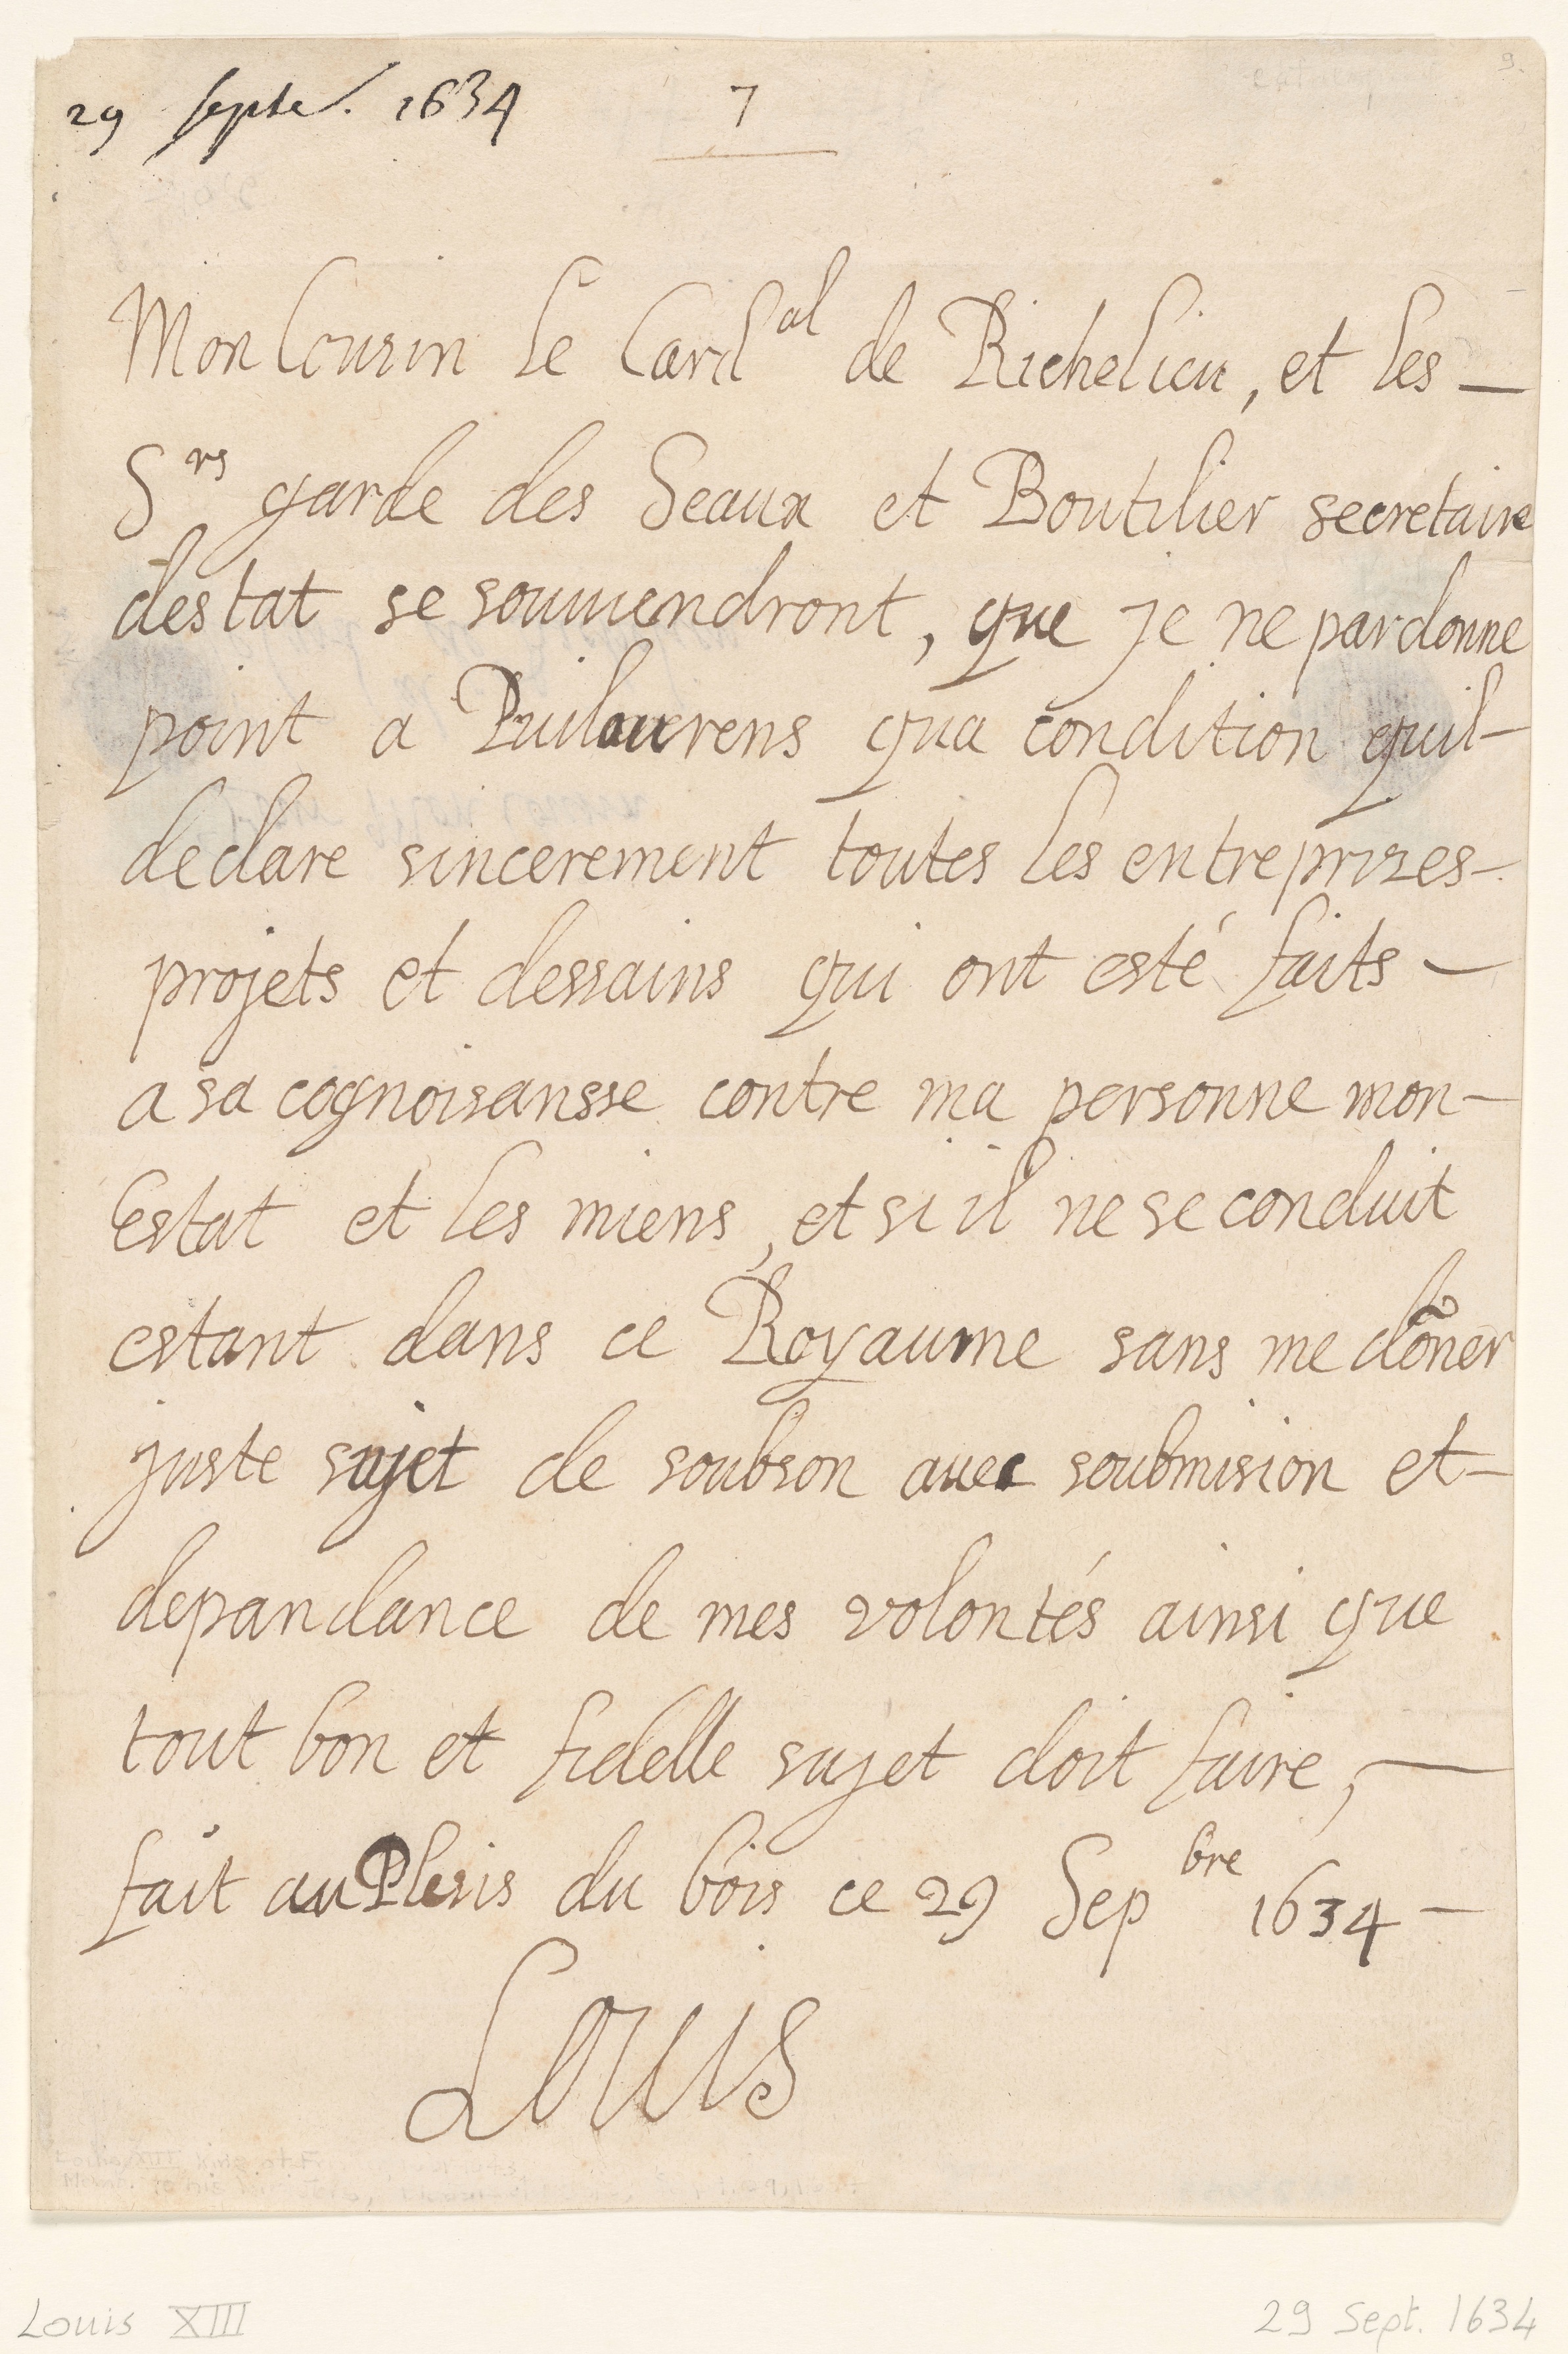 29 septe. 1634
7
Mon Cousin le Card^al de Richelieu, et les —
S^rs garde des Seaux et Boutilier secretaire
destat se souuiendront, que je ne pardonne
point a Puilaurens qua condition quil —
declare sincerement toutes les entreprizes —
projets et dessains qui ont esté faits —
a sa cognoisansse contre ma personne mon —
Estat et les miens, et si il ne se conduit
estant dans ce Royaume sans me dõner
juste sujet de soubson auec soubmision et —
depandance de mes volontés ainsi que
tout bon et fidelle sujet doit faire, —
fait au Plesis du bois ce 29 Sep^bre 1634 —
Louis
Louis XIII
29 Sept. 1634